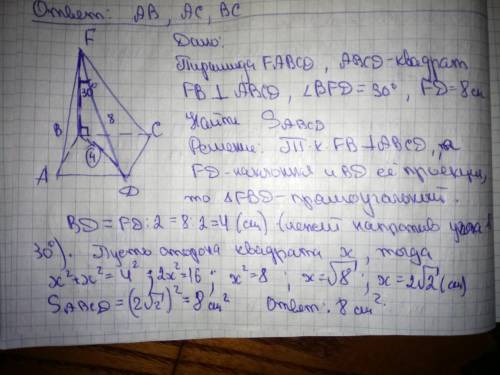 Ответ: АВ, АС, ВС
F
30°
B
8
C
4
A
D
Дано:
Пирамида FABCD, ABCD-квадрат
FB ⊥ ABCD, ∠BFD = 30°, FD = 8 см
Найти S ABCD
Решение: Т.к FB ⊥ ABCD, а
FD-наклонная и BD её проекция,
то ΔFBD-прямоугольный.
BD = FD : 2 = 8 : 2 = 4 (см) (лежит напротив угла
30°). Пусть сторона квадрата x, тогда
x² + x² = 4² ; 2x² = 16 ; x² = 8 ; x = √8 ; x = 2√2 (см)
S ABCD = (2√2)² = 8 см² Ответ: 8 см².